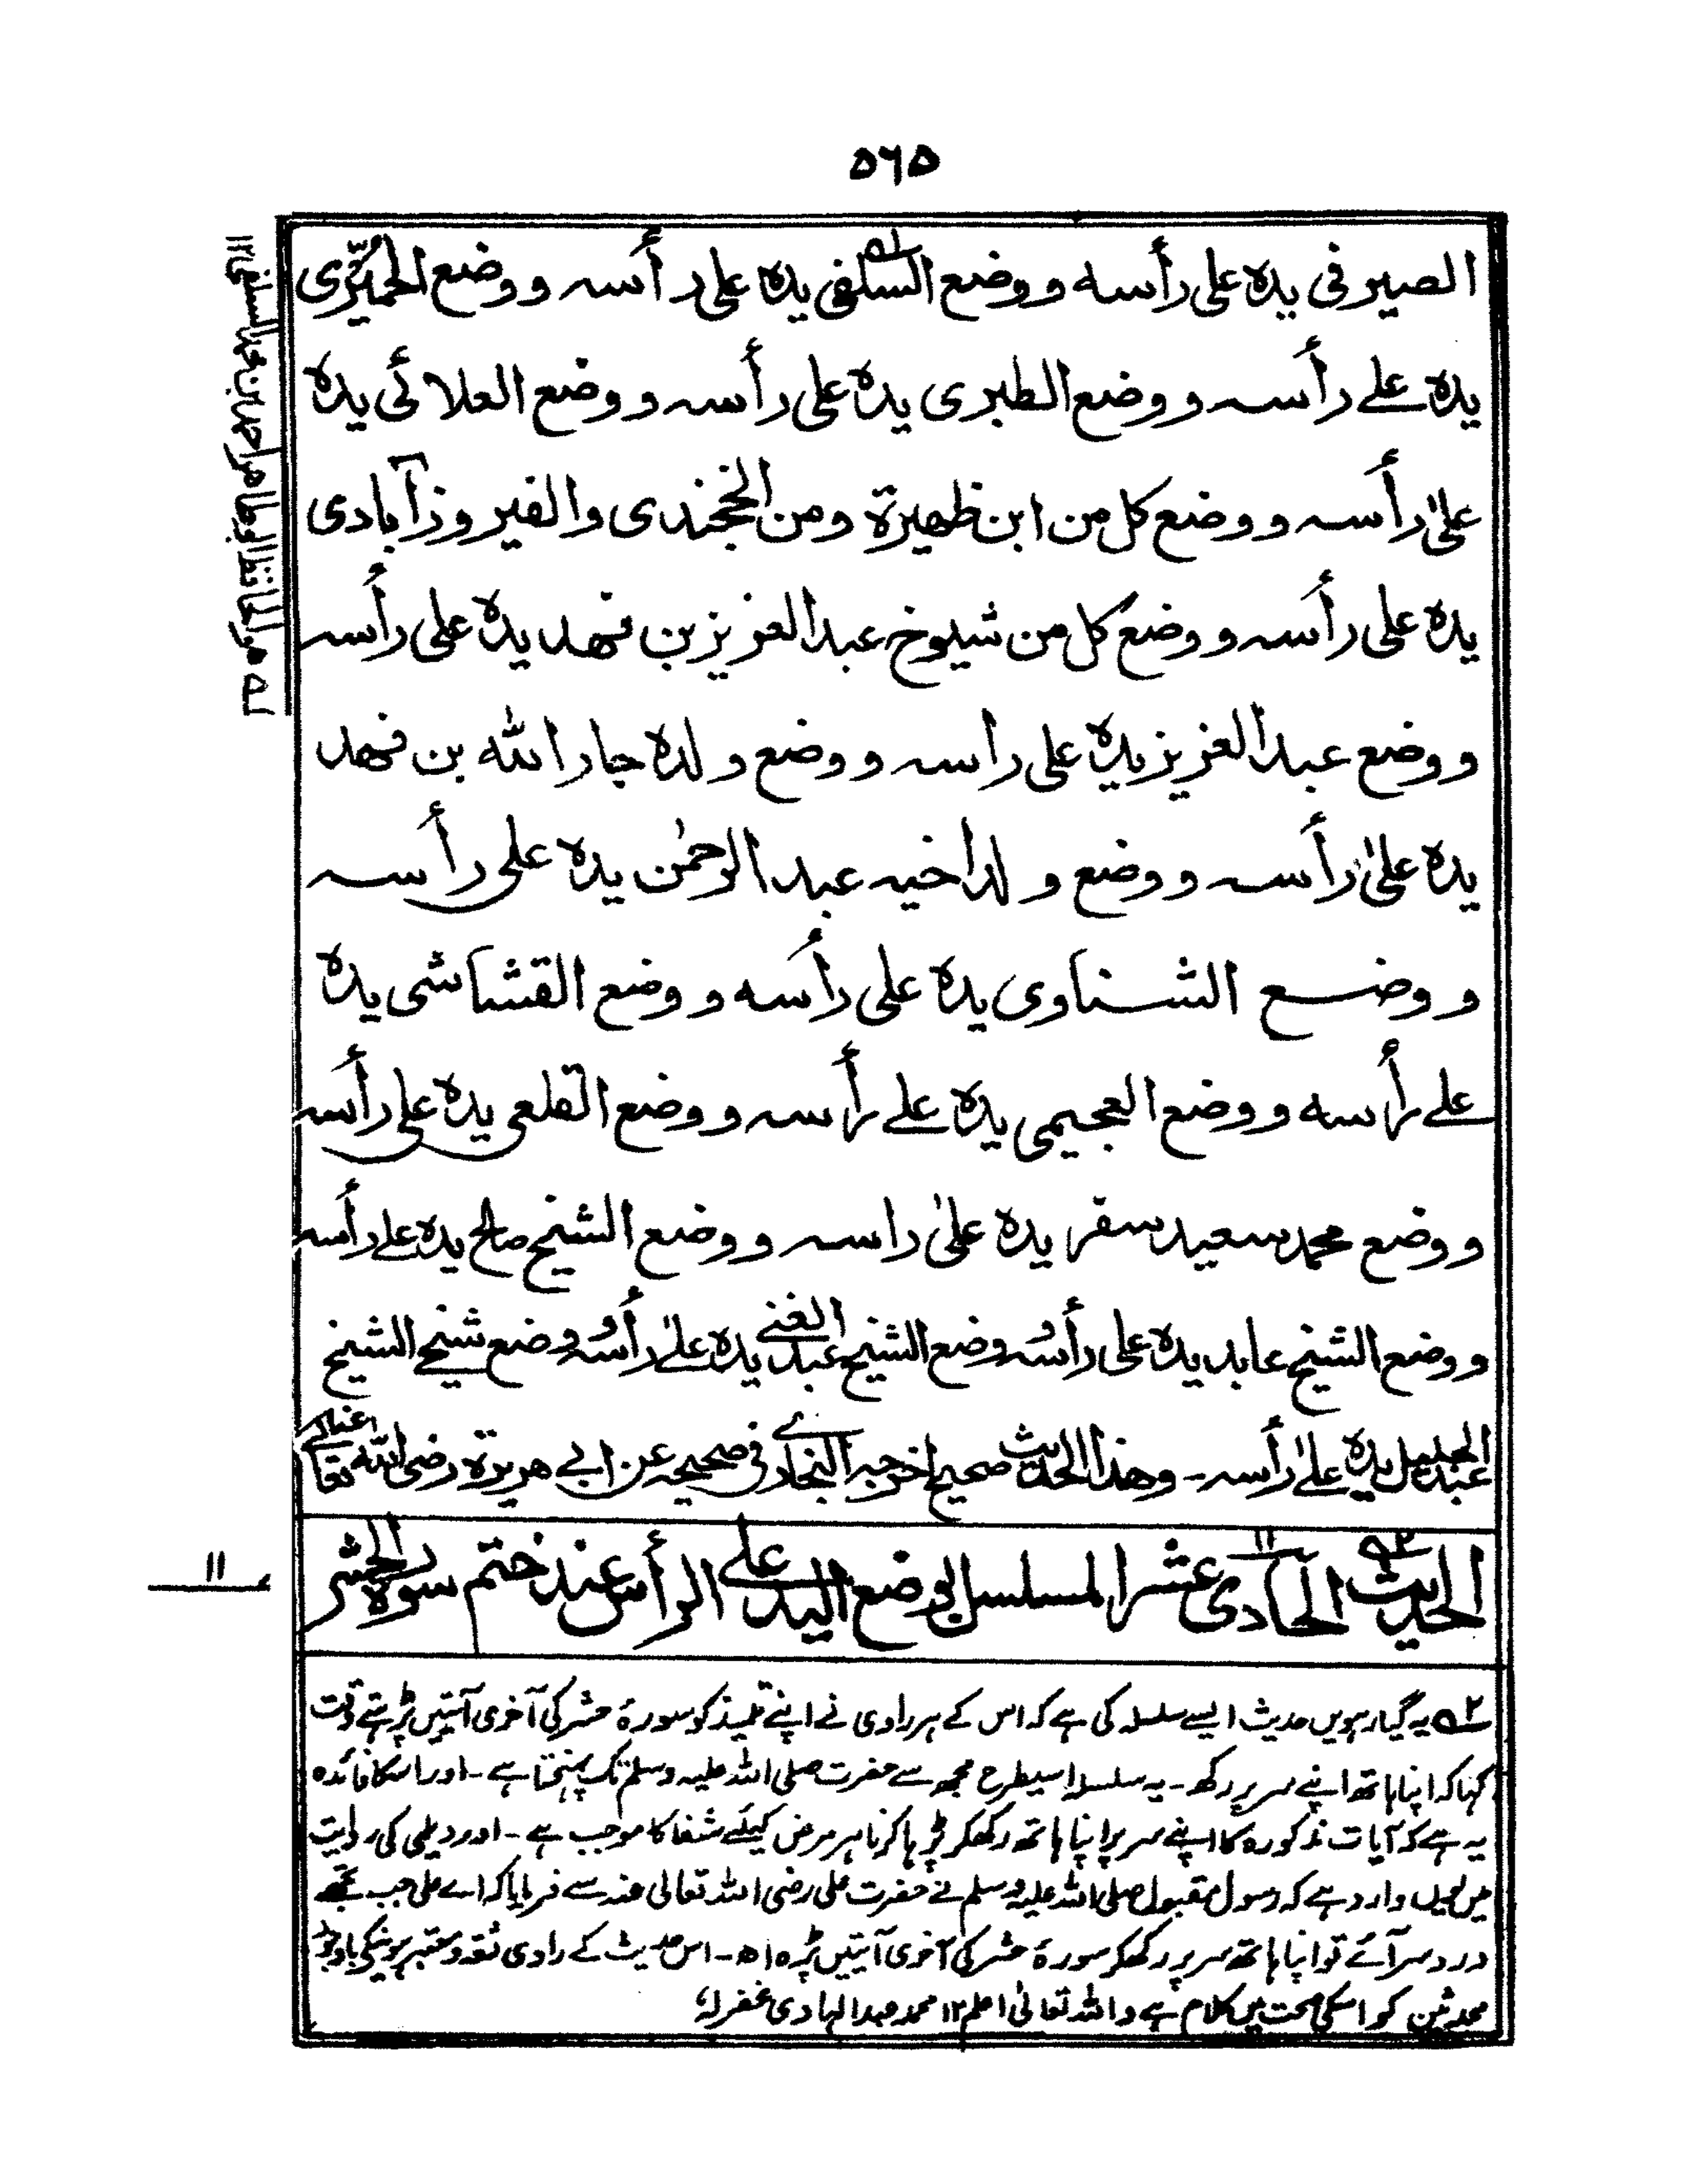 ۵۶۵
الصيرفى يده على رأسه و وضع السلفى يده على رأسه و وضع الحميّزى
يده علے رأسه و وضع الطبرى يده على رأسه و وضع العلائى يده
علىٰ رأسه و وضع كل من ابن ظهيرة و من الخجندى والفيروزآبادى
يده على رأسه و وضع كل من شيوخ عبدالعزيز بن فهد يده على رأسه
و وضع عبدالعزيز يده على راسه و وضع ولده جارالله بن فهد
يده علىٰ رأسه و وضع ولد اخيه عبدالرحمٰن يده على رأسه
و وضع الشناوى يده على رأسه و وضع القشاشى يده
علے رأسه و وضع العجيمى يده علے رأسه و وضع القلعى يده على رأسه
و وضع محمد سعيد سقر يده علىٰ راسه و وضع الشيخ صالح يده علے رأسه
و وضع الشيخ عابد يده على رأسه و وضع الشيخ عبد الغنے يده علىٰ رأسه و وضع شيخے الشيخ
عبد الجليل يده علىٰ رأسه ـ وهذا الحديث صحيح اخرجه البخارے فى صحيحه عن ابے هريرة رضى الله تعالے عنه
۱۱
الحديث ۲ الحادى عشر المسلسل بوضع اليد علے الرأس عند ختم سورة الحشر
۲ یہ گیارہویں حدیث ایسے سلسلہ کی ہے کہ اس کے ہر راوی نے اپنے تلمیذ کو سورۂ حشر کی آخری آیتیں پڑہتے وقت
کہا کہ اپنا ہاتھ اپنے سر پر رکھ ـ یہ سلسلہ اسیطرح مجھ سے حضرت صلی اللہ علیہ وسلم تک پہنچتا ہے ـ اور اسکا فائدہ
یہ ہے کہ آیات مذکورہ کا اپنے سر پر اپنا ہاتھ رکھکر پڑہا کرنا ہر مرض کیلئے شفا کا موجب ہے ـ اور دیلمی کی روایت
میں یوں وارد ہے کہ رسول مقبول صلی اللہ علیہ وسلم نے حضرت علی رضی اللہ تعالی عنہ سے فرمایا کہ اے علی جب تجھے
درد سر آئے تو اپنا ہاتھ سر پر رکھکر سورۂ حشر کی آخری آیتیں پڑہ اھ ـ اس حدیث کے راوی ثقہ و معتبر ہونیکے باوجود
محدثین کو اسکی صحت میں کلام ہے واللہ تعالیٰ اعلم ۱۲ محمد عبدالہادی غفرلہ
لہ هو الحافظ ابوطاهر احمد بن محمد السلفى ۱۲